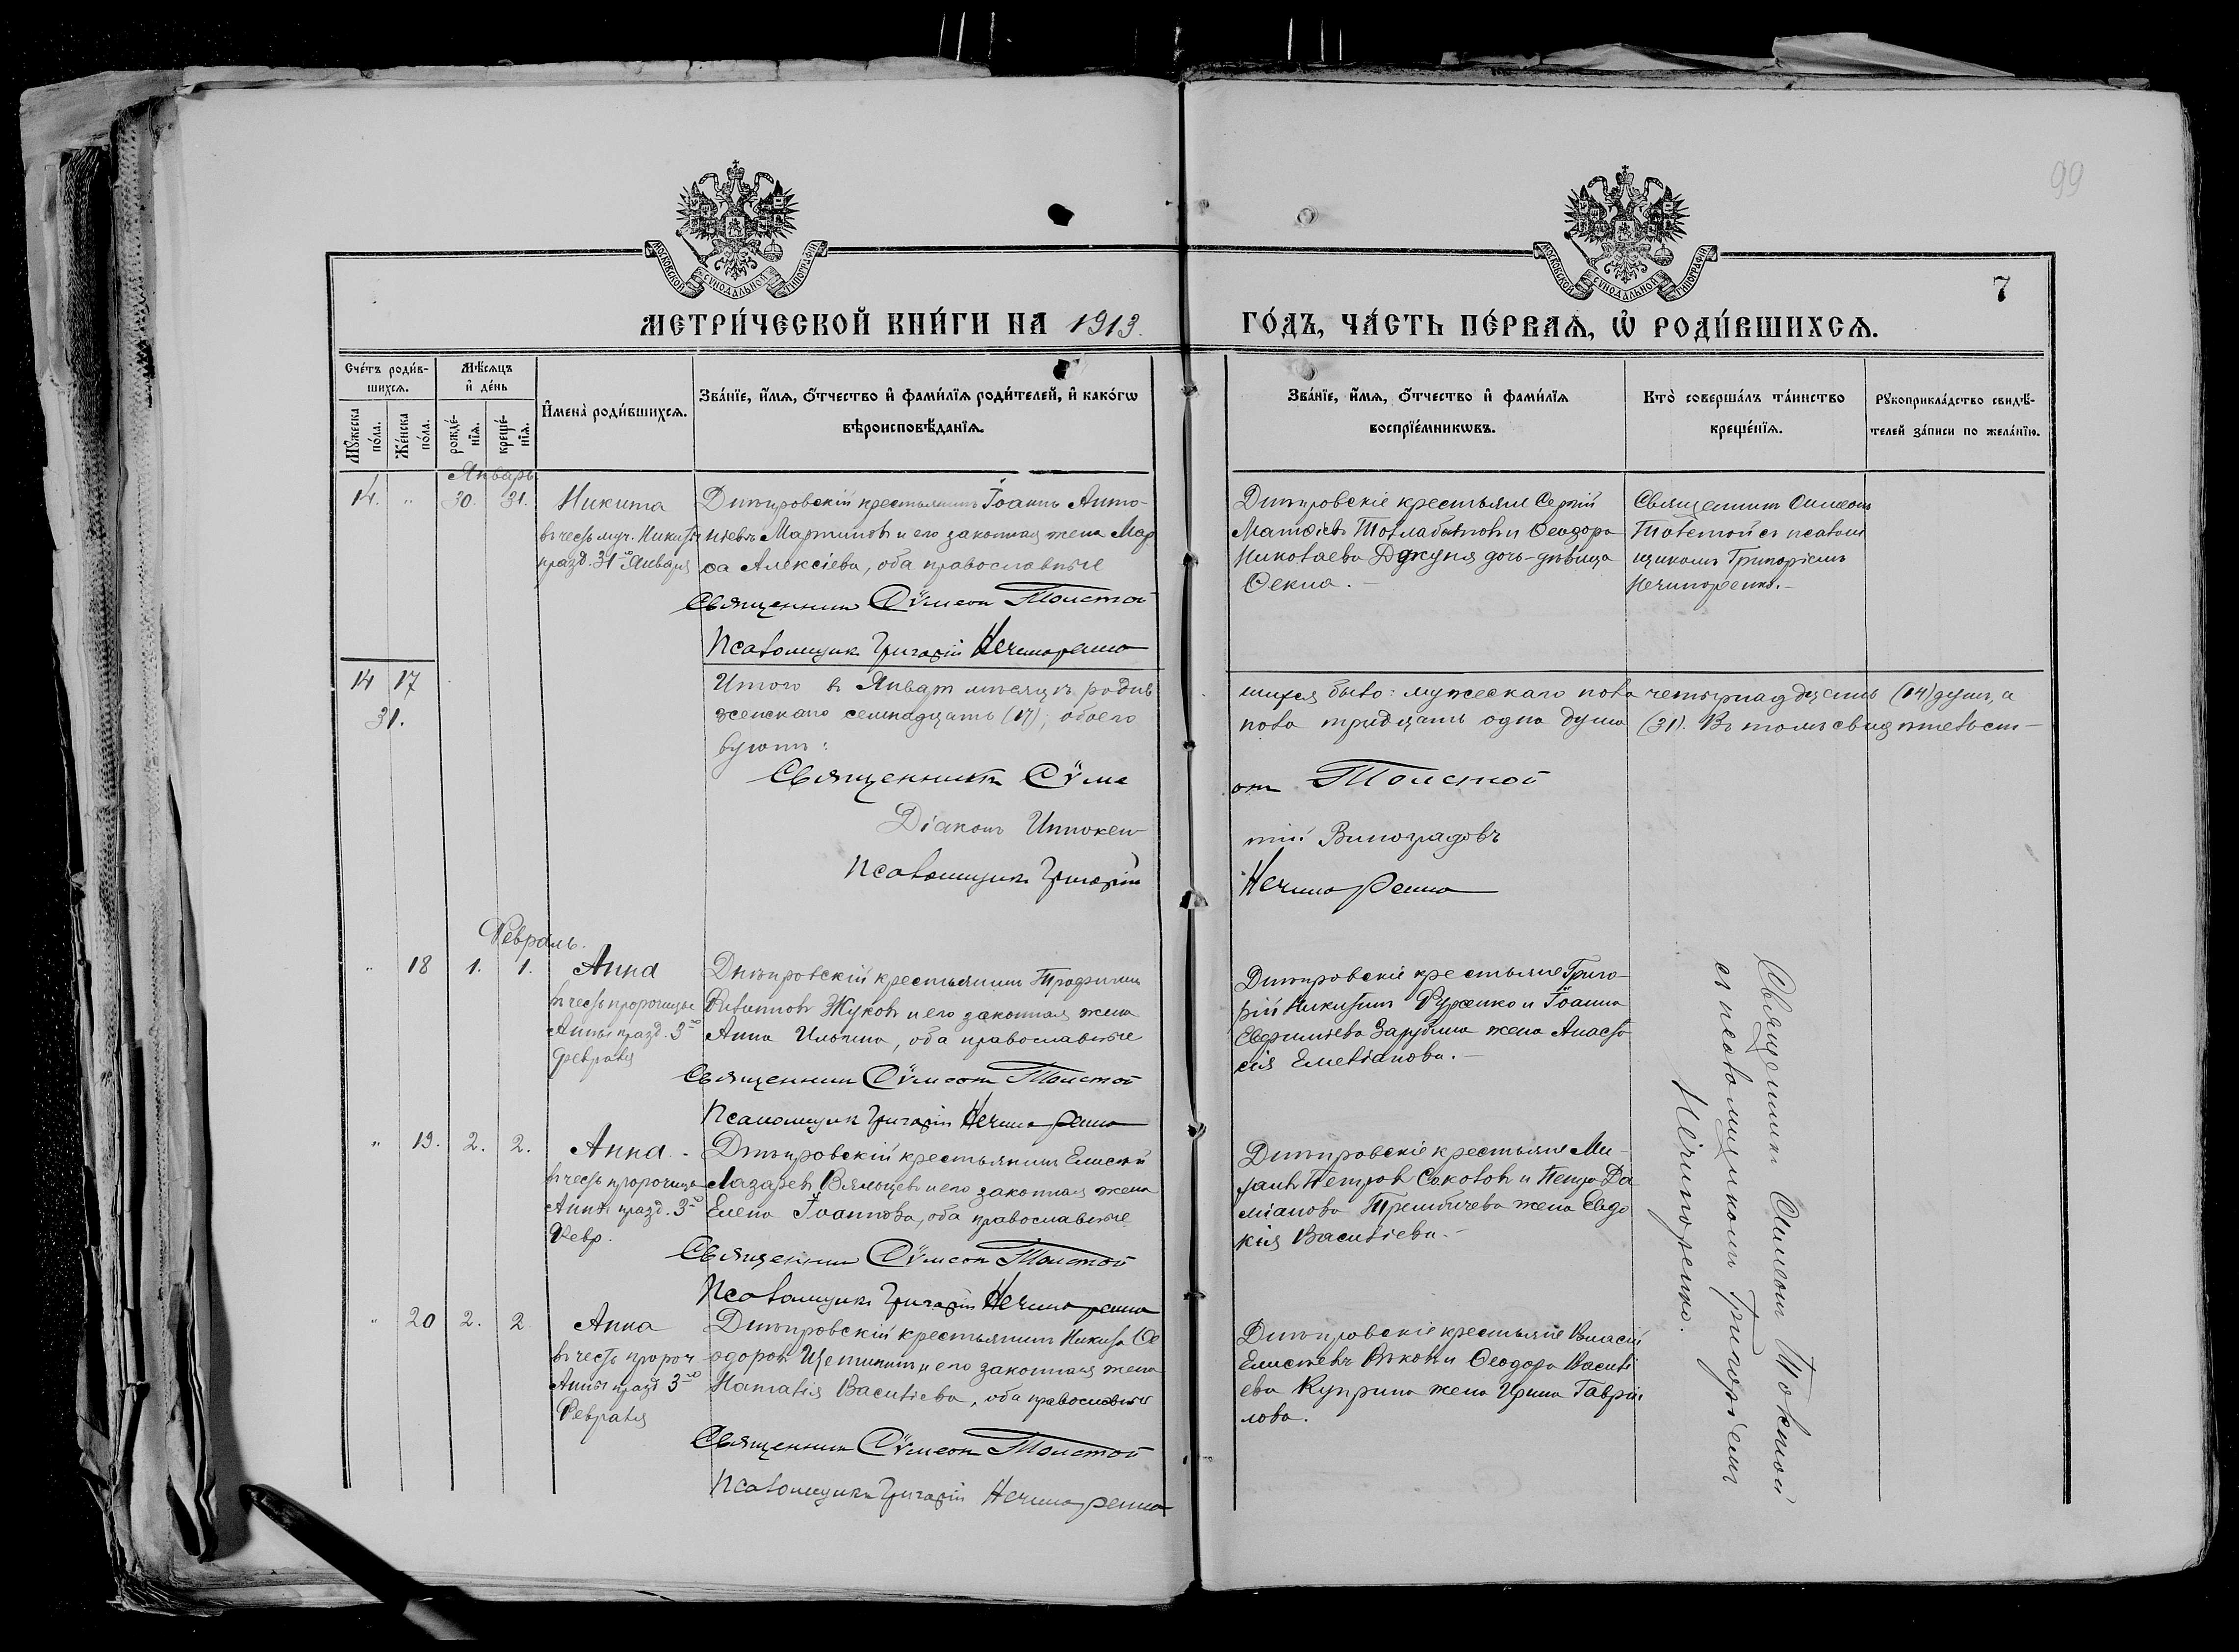 99
МОСКОВСКОЙ СУНОДАЛЬНОЙ ТИПОГРАФІИ
МОСКОВСКОЙ СУНОДАЛЬНОЙ ТИПОГРАФІИ
7
МЕТРИ́ЧЕСКОЙ КНИ́ГИ НА 1913. ГО́ДЪ, ЧА́СТЬ ПЕ́РВАѦ, Ѡ҆ РОДИ́ВШИХСѦ.
Сче́тъ роди́в-
шихсѧ.
Мѣ́сѧцъ
и҆ де́нь
Мꙋ́жеска
по́ла.
Же́нска
по́ла.
рожде́-
нїѧ.
креще́-
нїѧ.
И҆мена̀ роди́вшихсѧ.
Зва́нїе, и҆́мѧ, ѻ҆́тчество и҆ фами́лїѧ роди́телей, и҆ како́гѡ
вѣроисповѣ́данїѧ.
Зва́нїе, и҆́мѧ, ѻ҆́тчество и҆ фами́лїѧ
воспрїе́мникѡвъ.
Кто̀ соверша́лъ та́инство
креще́нїѧ.
Рꙋкоприкла́дство свидѣ́-
телей за́писи по жела́нїю.
Январь
14. " 30. 31. Никита
въ честь муч. Никиты
празд. 31го Января
Днѣпровскій крестьянинъ Іоаннъ Анто-
ніевъ Мартиновъ и его законная жена Мар
ѳа Алексіева, оба православные
Священникъ Сѵмеонъ Толстой
Псаломщикъ Григорій Нечипоренко
Днѣпровскіе крестьяне Сергій
Матѳіевъ и Ѳеодора
Николаева дочь-дѣвица
Ѳекла. –
Священникъ Симеонъ
Толстой съ псалом
щикомъ Григоріемъ
Нечипоренко. –
14 17
31.
Итого въ Январѣ мѣсяцѣ родив
шихся было: мужескаго пола четырнадцать (14) душъ, а
женскаго семнадцать (17), обоего
пола тридцать одна душа (31). Въ томъ свидѣтельст-
вуютъ:
Священникъ Сѵме
онъ Толстой
Діаконъ Иннокен-
тій Виноградовъ
Псаломщикъ Григорій
Нечипоренко
Февраль.
" 18 1. 1. Анна
въ честь пророчицы
Анны празд. 3го
февраля
Днѣпровскій крестьянинъ Трофимъ
Жуковъ и его законная жена
Анна Ильина, оба православные
Священникъ Сѵмеонъ Толстой
Псаломщикъ Григорій Нечипоренко
Днѣпровскіе крестьяне Григо-
рій Никитинъ и Іоанна
жена Анаста
сія Емеліанова. –
Священникъ Симеонъ Толстой
съ псаломщикомъ Григоріемъ
Нечипоренко.
" 19. 2. 2. Анна. -
въ честь пророчицы
Анны празд. 3го
Февр.
Днѣпровскій крестьянинъ Елисей
Лазаревъ Вяльцевъ и его законная жена
Елена Іоаннова, оба православные
Священникъ Сѵмеонъ Толстой
Псаломщикъ Григорій Нечипоренко
Днѣпровскіе крестьяне Ми-
Петровъ Соколовъ и Петра Да
міанова жена Евдо
кія Василіева. –
" 20 2. 2 Анна
въ честь пророч
Анны празд 3го
Февраля
Днѣпровскій крестьянинъ Никита Ѳе
одоровъ Щетининъ и его законная жена
Наталія Василіева, оба православные
Священникъ Сѵмеонъ Толстой
Псаломщикъ Григорій Нечипоренко
Днѣпровскіе крестьяне Власій
Елисеевъ и Ѳеодора Васили
ева Куприна жена Ирина Гаврии
лова.